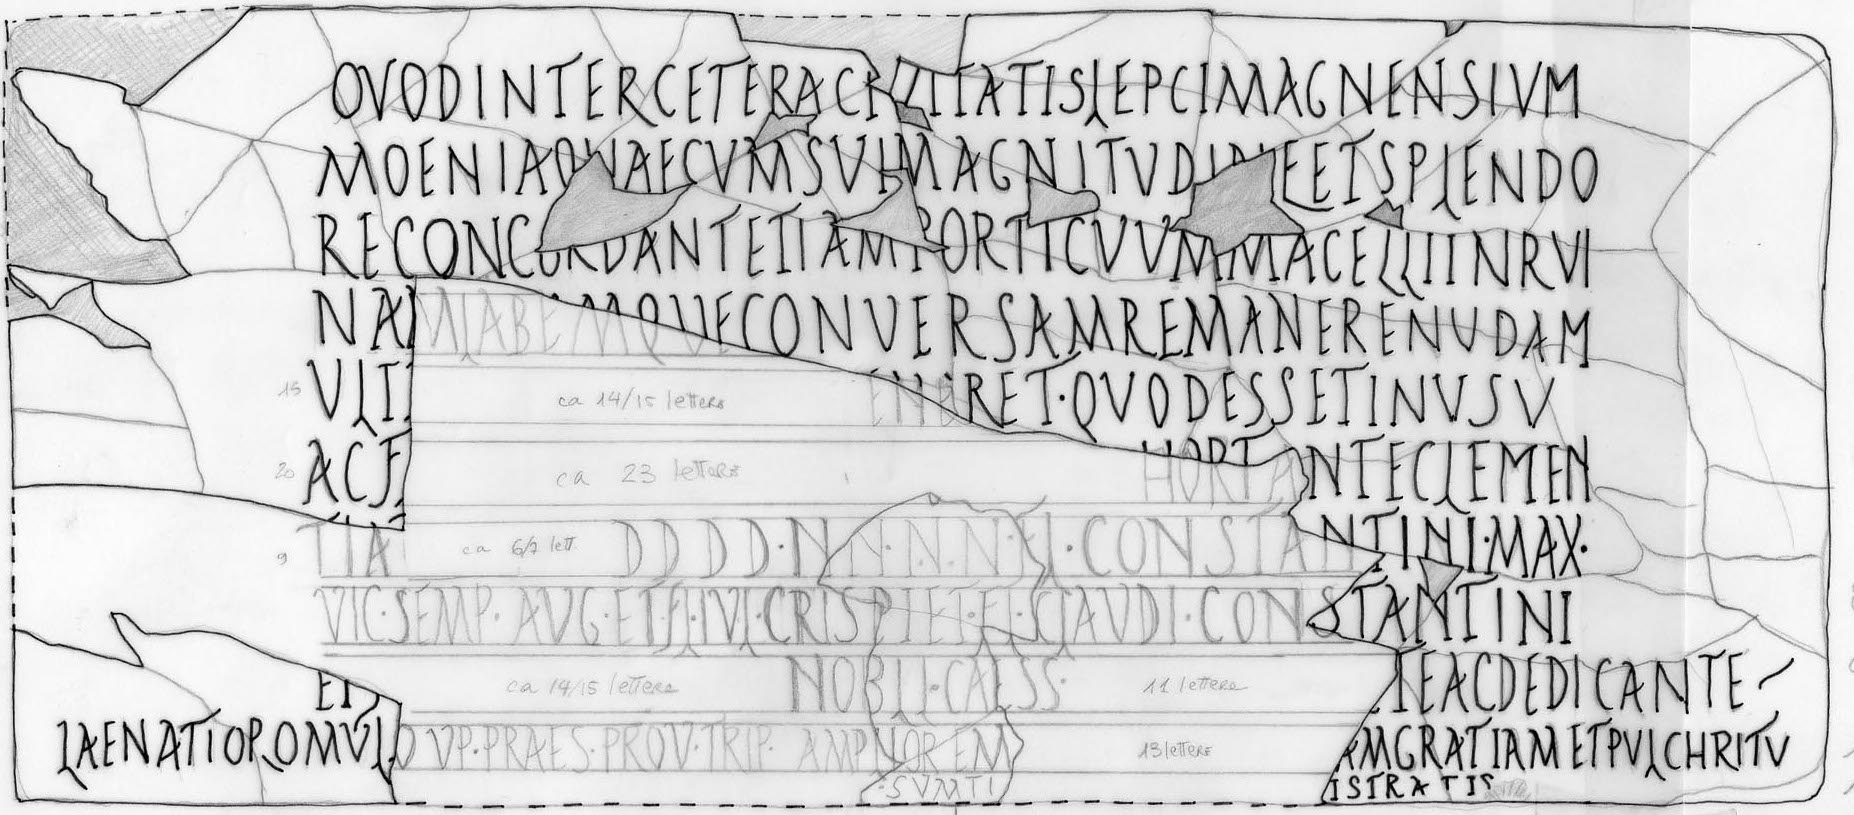 QVODINTERCETERACIVITATISLEPCIMAGNENSIVM
MOENIAQVAECVMSVIMAGNITVDINEETSPLENDO
RECONCORDANTETIAMPORTICVVMMACELLIINRVI
NAMLABEMQVECONVERSAMREMANERENVDAM
15 VLTI ca 14/15 lettere RET·QVODESSETINVSV
20 ACF ca 23 lettere HORTANTECLEMEN
9 TIA ca 6/7 lett. DDDD·N N·N·N·FL·CONSTANTINI·MAX·
VIC·SEMP·AVG·ETFL·IVL·CRISPIET·FL·CLAVDI·CONSTANTINI
ET ca 14/15 lettere NOBIL·CAESS· 11 lettere TEACDEDICANTE
LAENATIOROMVLO VP·PRAES·PROV·TRIP· AMPLIOREM 13 lettere AMGRATIAMETPVLCHRITV
SVMTI ISTRATIS